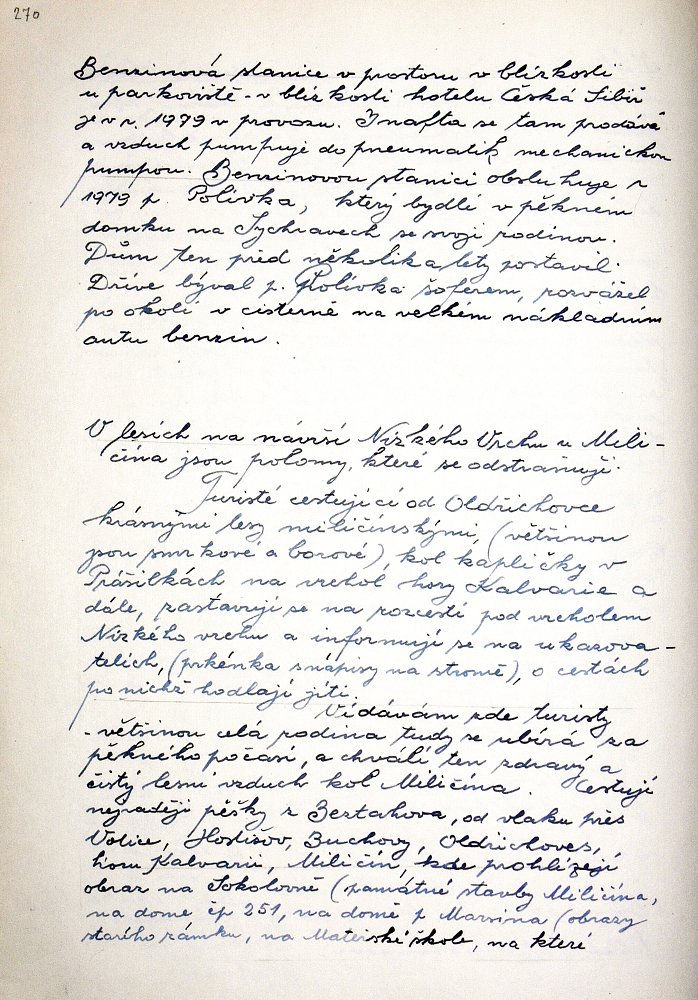 270
Benzinová stanice v prostoru v blízkosti
u parkoviště - v blízkosti hotelu Česká Sibiř
je v r. 1979 v provozu. I nafta se tam prodává
a vzduch pumpuje do pneumatik mechanickou
pumpou. Benzinovou stanici obsluhuje r
1979 p. Polívka, který bydlí v pěkném
domku na Sychravech se svojí rodinou.
Dům ten před několika lety postavil.
Dříve býval p. Polívka šoferem, rozvážel
po okolí v cisterně na velkém nákladním
autu benzin.
V lesích na návrší Nízkého Vrchu u Mili-
čína jsou polomy, které se odstraňují.
Turisté cestující od Oldřichovce
krásnými lesy miličínskými, (většinou
jsou smrkové a borové), kol kapličky v
Prášilkách na vrchol hory Kalvarie a
dále, zastavují se na rozcestí pod vrcholem
Nízkého vrchu a informují se na ukazova-
telích, (prkénka s nápisy na stromě), o cestách
po nichž hodlají jíti.
Vídávám zde turisty
- většinou celá rodina tudy se ubírá za
pěkného počasí, a chválí ten zdravý a
čistý lesní vzduch kol Miličína. Cestují
nejraději pěšky z Beztahova, od vlaku přes
Votice, Hostišov, Buchovy, Oldřichovec,
horu Kalvarii, Miličín, kde prohlížejí
obraz na Sokolovně (památné stavby Miličína,
na domě čp 251, na domě p Marsina (obrazy
starého zámku, na Mateřské škole, na které